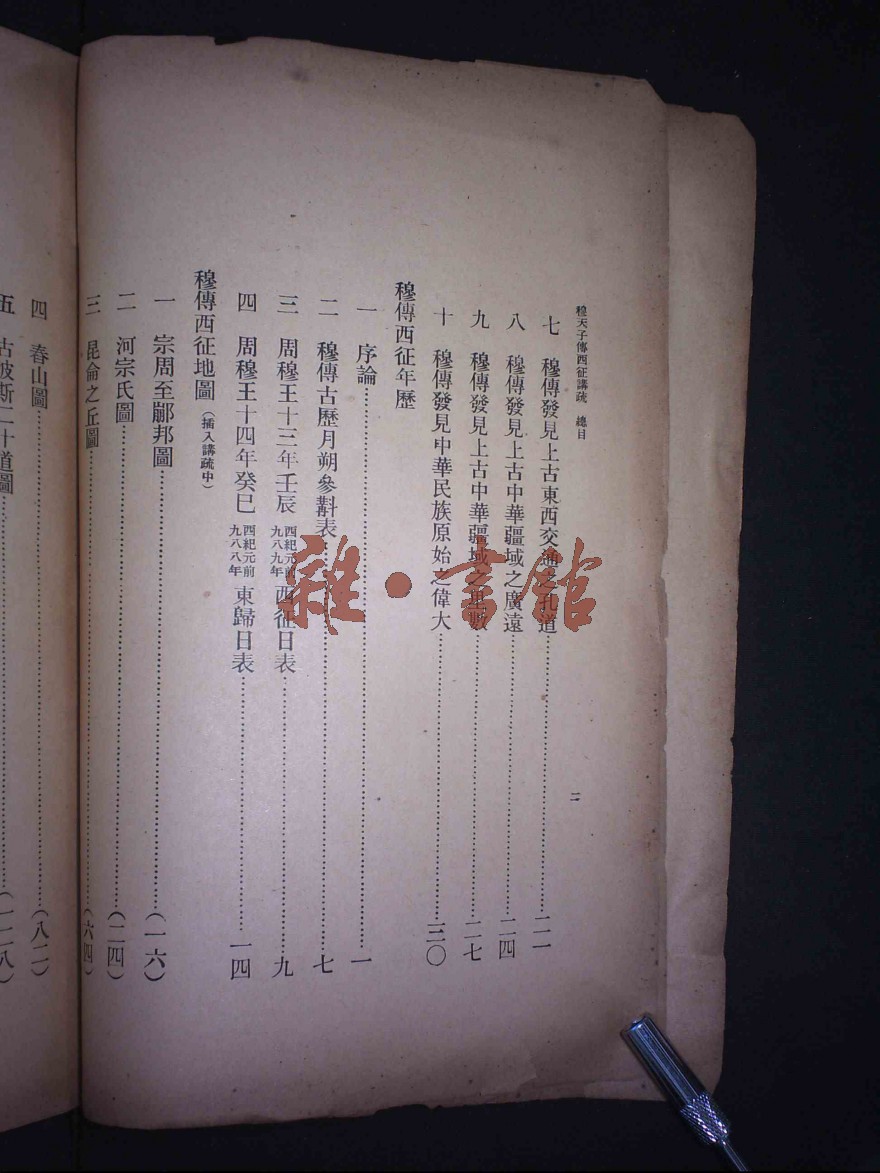 穆天子傳西征講疏 總目
二
七 穆傳發見上古東西交通之孔道……二一
八 穆傳發見上古中華疆域之廣遠……二四
九 穆傳發見上古中華疆域之里數……二七
十 穆傳發見中華民族原始之偉大……三〇
穆傳西征年歷
一 序論……一
二 穆傳古歷月朔參斠表……七
三 周穆王十三年壬辰 西紀元前九八九年 西征日表……九
四 周穆王十四年癸巳 西紀元前九八八年 東歸日表……一四
穆傳西征地圖（插入講疏中）
一 宗周至䣙邦圖……（一六）
二 河宗氏圖……（二四）
三 昆侖之丘圖……（六四）
四 舂山圖……（八二）
五 古波斯二十道圖……（一二八）
雜·書館